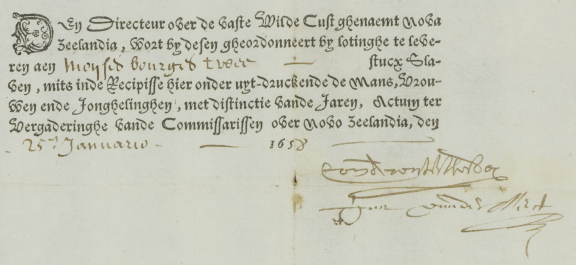 DEn Directeur over de vaste Wilde Cust ghenaemt Nova
Zeelandia, Wort by desen gheordonneert by lotinghe te leve-
ren aen Moyses bourges twee — stucx Sla-
ven, mits inde Recipisse hier onder uyt-druckende de Mans, Vrou-
wen ende Jonghelinghen, met distinctie vande Jaren, Actum ter
Vergaderinghe vande Commissarissen over Novo Zeelandia, den
25en Januario — 1658